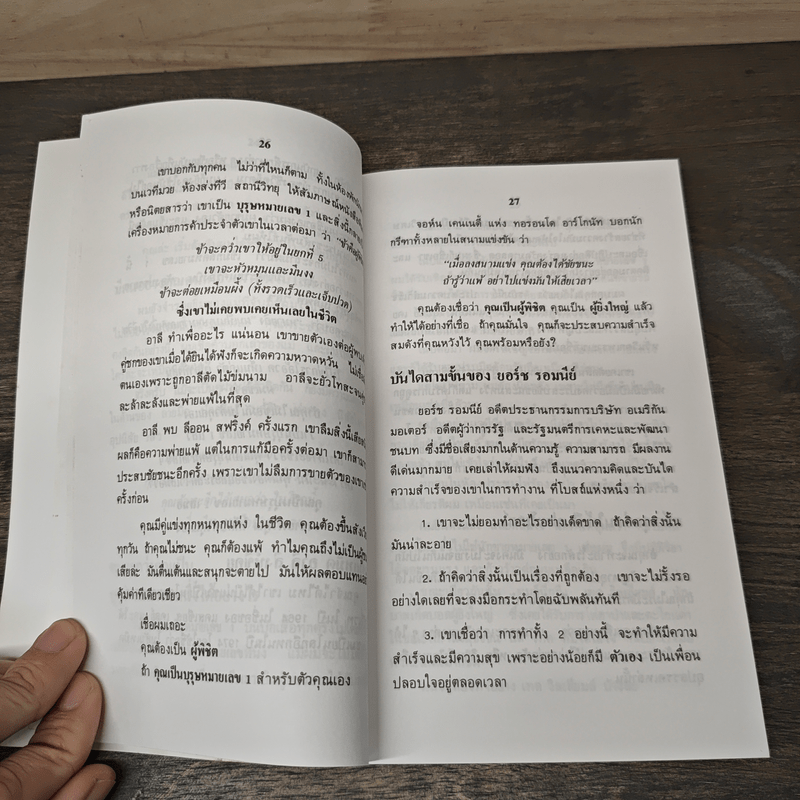 26
เขาบอกกับทุกคน ไม่ว่าที่ไหนก็ตาม ทั้งในห้อง
บนเวทีมวย ห้องส่งทีวี สถานีวิทยุ ให้สัมภาษณ์หนังสือ
หรือนิตยสารว่า เขาเป็น บุรุษหมายเลข 1 และสิ่งนี้
เครื่องหมายการค้าประจำตัวเขาในเวลาต่อมา ว่า
ข้าจะคว่ำเขาให้อยู่ในยกที่ 5
เขาจะหัวหมุนและมึนงง
ข้าจะต่อยเหมือนผึ้ง (ทั้งรวดเร็วและเจ็บปวด)
ซึ่งเขาไม่เคยพบเคยเห็นเลยในชีวิต
อาลี ทำเพื่ออะไร แน่นอน เขาขายตัวเองต่อ
คู่ชกของเขาเมื่อได้ยินได้ฟังก็จะเกิดความหวาดหวั่น
ตนเองเพราะถูกอาลีตัดไม้ข่มนาม อาลีจะยั่วโทสะจน
ละล้าละลังและพ่ายแพ้ในที่สุด
อาลี พบ ลีออน สฟริ้งค์ ครั้งแรก เขาลืมสิ่งนี้
ผลก็คือความพ่ายแพ้ แต่ในการแก้มือครั้งต่อมา เขาก็
ประสบชัยชนะอีกครั้ง เพราะเขาไม่ลืมการขายตัวของเขา
ครั้งก่อน
คุณมีคู่แข่งทุกหนทุกแห่ง ในชีวิต คุณต้องขึ้น
ทุกวัน ถ้าคุณไม่ชนะ คุณก็ต้องแพ้ ทำไมคุณถึงไม่เป็น
เสียล่ะ มันตื่นเต้นและสนุกจะตายไป มันให้ผลตอบแทน
คุ้มค่าทีเดียวเชียว
เชื่อผมเถอะ
คุณต้องเป็น ผู้พิชิต
ถ้า คุณเป็นบุรุษหมายเลข 1 สำหรับตัวคุณเอง
27
จอห์น เคนเนตี้ แห่ง ทอร่อนโต อาร์โกนัท บอกนัก
กรีฑาทั้งหลายในสนามแข่งขัน ว่า
"เมื่อลงสนามแข่ง คุณต้องได้ชัยชนะ
ถ้ารู้ว่าแพ้ อย่าไปแข่งมันให้เสียเวลา"
คุณต้องเชื่อว่า คุณเป็นผู้พิชิต คุณเป็น ผู้ยิ่งใหญ่ แล้ว
ทำให้ได้อย่างที่เชื่อ ถ้าคุณมั่นใจ คุณก็จะประสบความสำเร็จ
สมดังที่คุณหวังไว้ คุณพร้อมหรือยัง?
บันไดสามขั้นของ ยอร์ช รอมนีย์
ยอร์ช รอมนีย์ อดีตประธานกรรมการบริษัท อเมริกัน
มอเตอร์ อดีตผู้ว่าการรัฐ และรัฐมนตรีการเคหะและพัฒนา
ชนบท ซึ่งมีชื่อเสียงมากในด้านความรู้ ความสามารถ มีผลงาน
ดีเด่นมากมาย เคยเล่าให้ผมฟัง ถึงแนวความคิดและบันได
ความสำเร็จของเขาในการทำงาน ที่โบสถ์แห่งหนึ่ง ว่า
1. เขาจะไม่ยอมทำอะไรอย่างเด็ดขาด ถ้าคิดว่าสิ่งนั้น
มันน่าละอาย
2. ถ้าคิดว่าสิ่งนั้นเป็นเรื่องที่ถูกต้อง เขาจะไม่รั้งรอ
อย่างใดเลยที่จะลงมือกระทำโดยฉับพลันทันที
3. เขาเชื่อว่า การทำทั้ง 2 อย่างนี้ จะทำให้มีความ
สำเร็จและมีความสุข เพราะอย่างน้อยก็มี ตัวเอง เป็นเพื่อน
ปลอบใจอยู่ตลอดเวลา